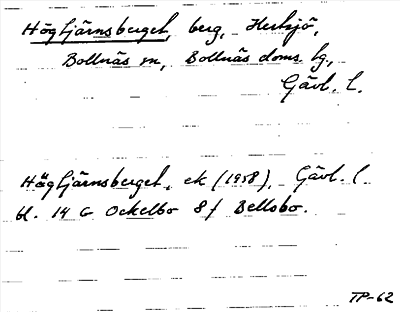 Högtjärnsberget, berg, Hertsjö,
Bollnäs sn, Bollnäs doms. lg.,
Gävl. l.
Högtjärnsberget, ek (1958), Gävl. l.
bl. 14 G Ockelbo 8 f Bellsbo.
TP-62